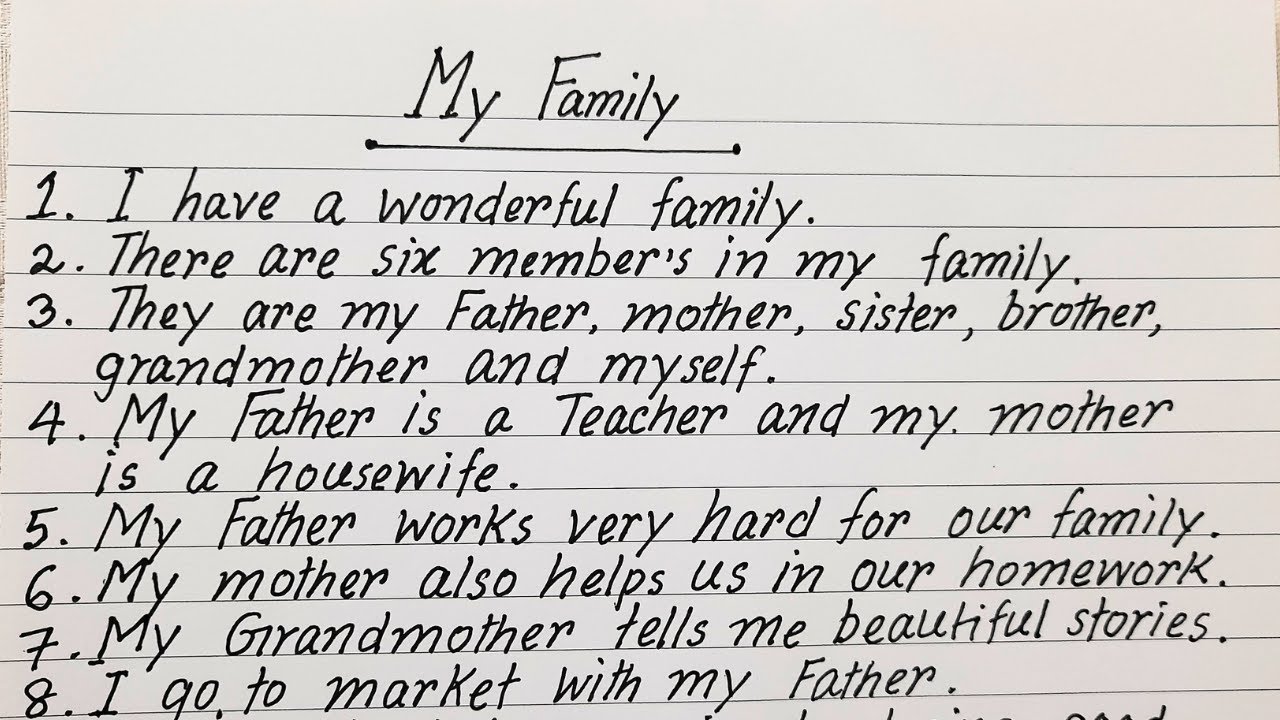 My Family
1. I have a wonderful family.
2. There are six member's in my family.
3. They are my Father, mother, sister, brother,
grandmother and myself.
4. My Father is a Teacher and my. mother
is a housewife.
5. My Father works very hard for our family.
6. My mother also helps us in our homework.
7. My Grandmother tells me beautiful stories.
8. I go. to market with my Father.